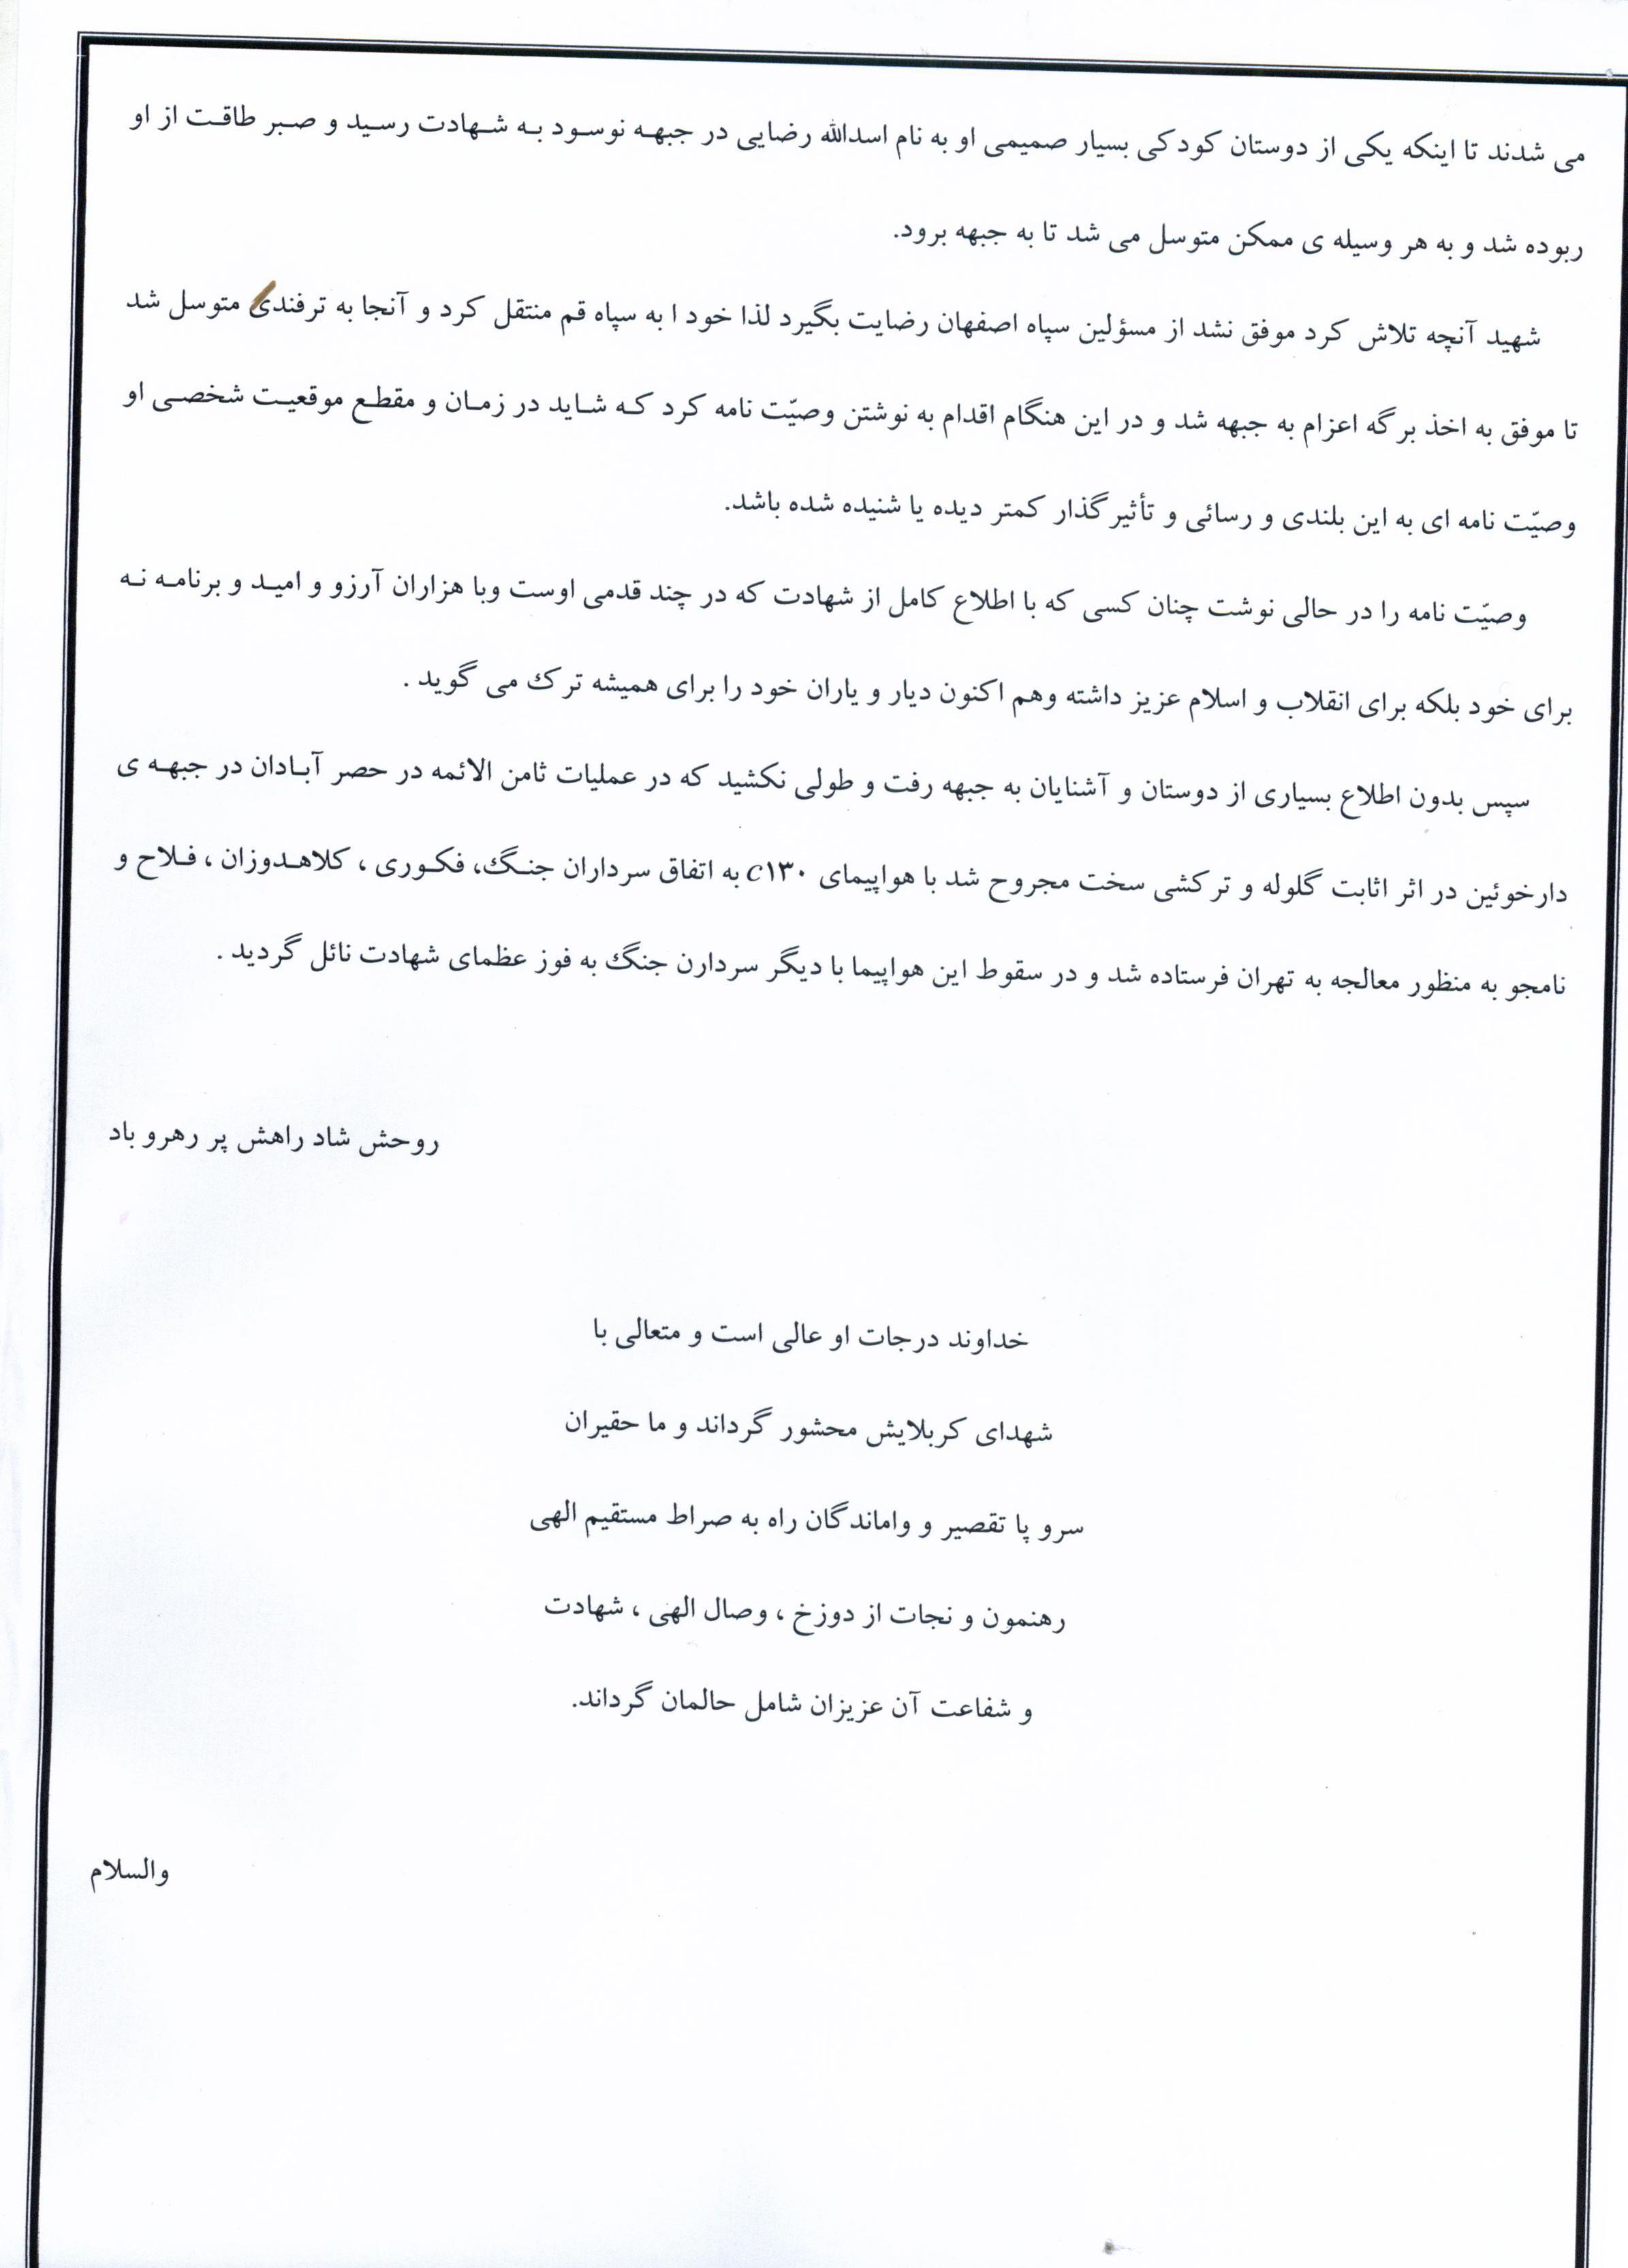 می شدند تا اینکه یکی از دوستان کودکی بسیار صمیمی او به نام اسدالله رضایی در جبهه نوسود به شهادت رسید و صبر طاقت از او
ربوده شد و به هر وسیله ی ممکن متوسل می شد تا به جبهه برود.
شهید آنچه تلاش کرد موفق نشد از مسؤلین سپاه اصفهان رضایت بگیرد لذا خود ا به سپاه قم منتقل کرد و آنجا به ترفندی متوسل شد
تا موفق به اخذ برگه اعزام به جبهه شد و در این هنگام اقدام به نوشتن وصیّت نامه کرد که شاید در زمان و مقطع موقعیت شخصی او
وصیّت نامه ای به این بلندی و رسائی و تأثیرگذار کمتر دیده یا شنیده شده باشد.
وصیّت نامه را در حالی نوشت چنان کسی که با اطلاع کامل از شهادت که در چند قدمی اوست وبا هزاران آرزو و امید و برنامه نه
برای خود بلکه برای انقلاب و اسلام عزیز داشته وهم اکنون دیار و یاران خود را برای همیشه ترک می گوید .
سپس بدون اطلاع بسیاری از دوستان و آشنایان به جبهه رفت و طولی نکشید که در عملیات ثامن الائمه در حصر آبادان در جبهه ی
دارخوئین در اثر اثابت گلوله و ترکشی سخت مجروح شد با هواپیمای c۱۳۰ به اتفاق سرداران جنگ، فکوری ، کلاهدوزان ، فلاح و
نامجو به منظور معالجه به تهران فرستاده شد و در سقوط این هواپیما با دیگر سردارن جنگ به فوز عظمای شهادت نائل گردید .
روحش شاد راهش پر رهرو باد
خداوند درجات او عالی است و متعالی با
شهدای کربلایش محشور گرداند و ما حقیران
سرو پا تقصیر و واماندگان راه به صراط مستقیم الهی
رهنمون و نجات از دوزخ ، وصال الهی ، شهادت
و شفاعت آن عزیزان شامل حالمان گرداند.
والسلام